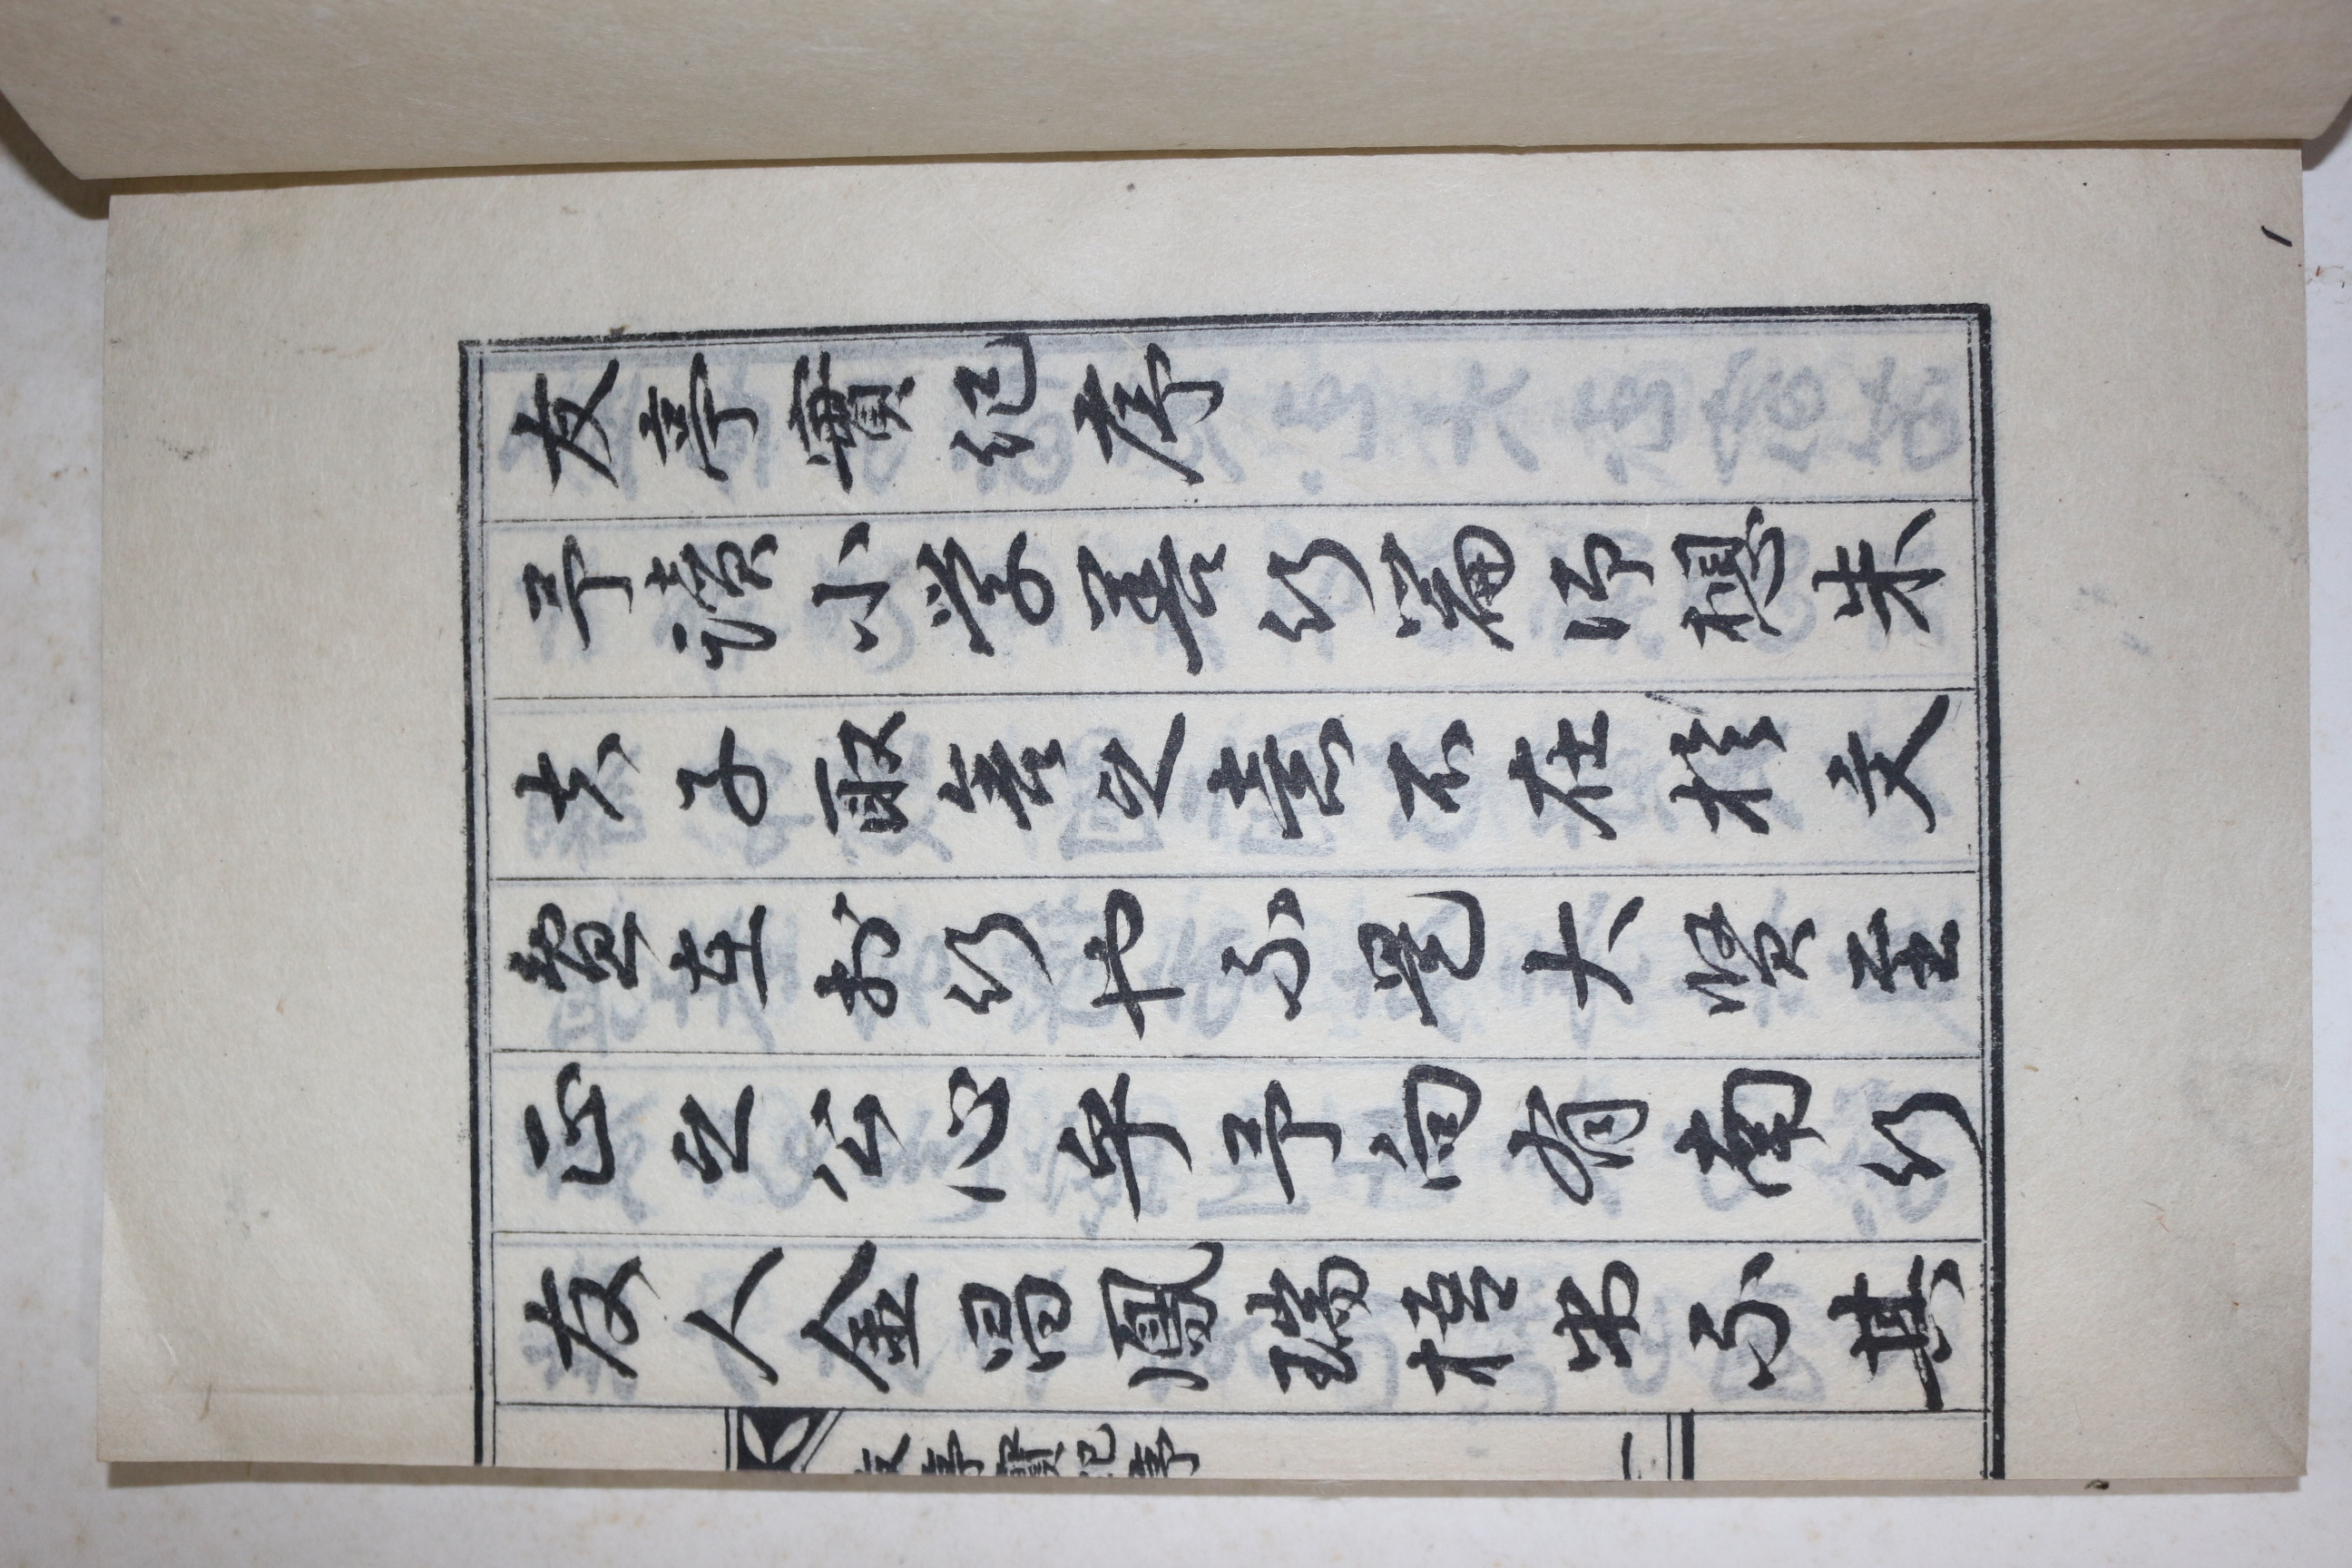 友亭實紀序
予讀小学善行篇仰想朱
夫子取舍之意不在於文
在於行也示是大賢至
正之公心乎予向有南行
友人金昌鳳瑞梧示其
友亭實紀序
一
1